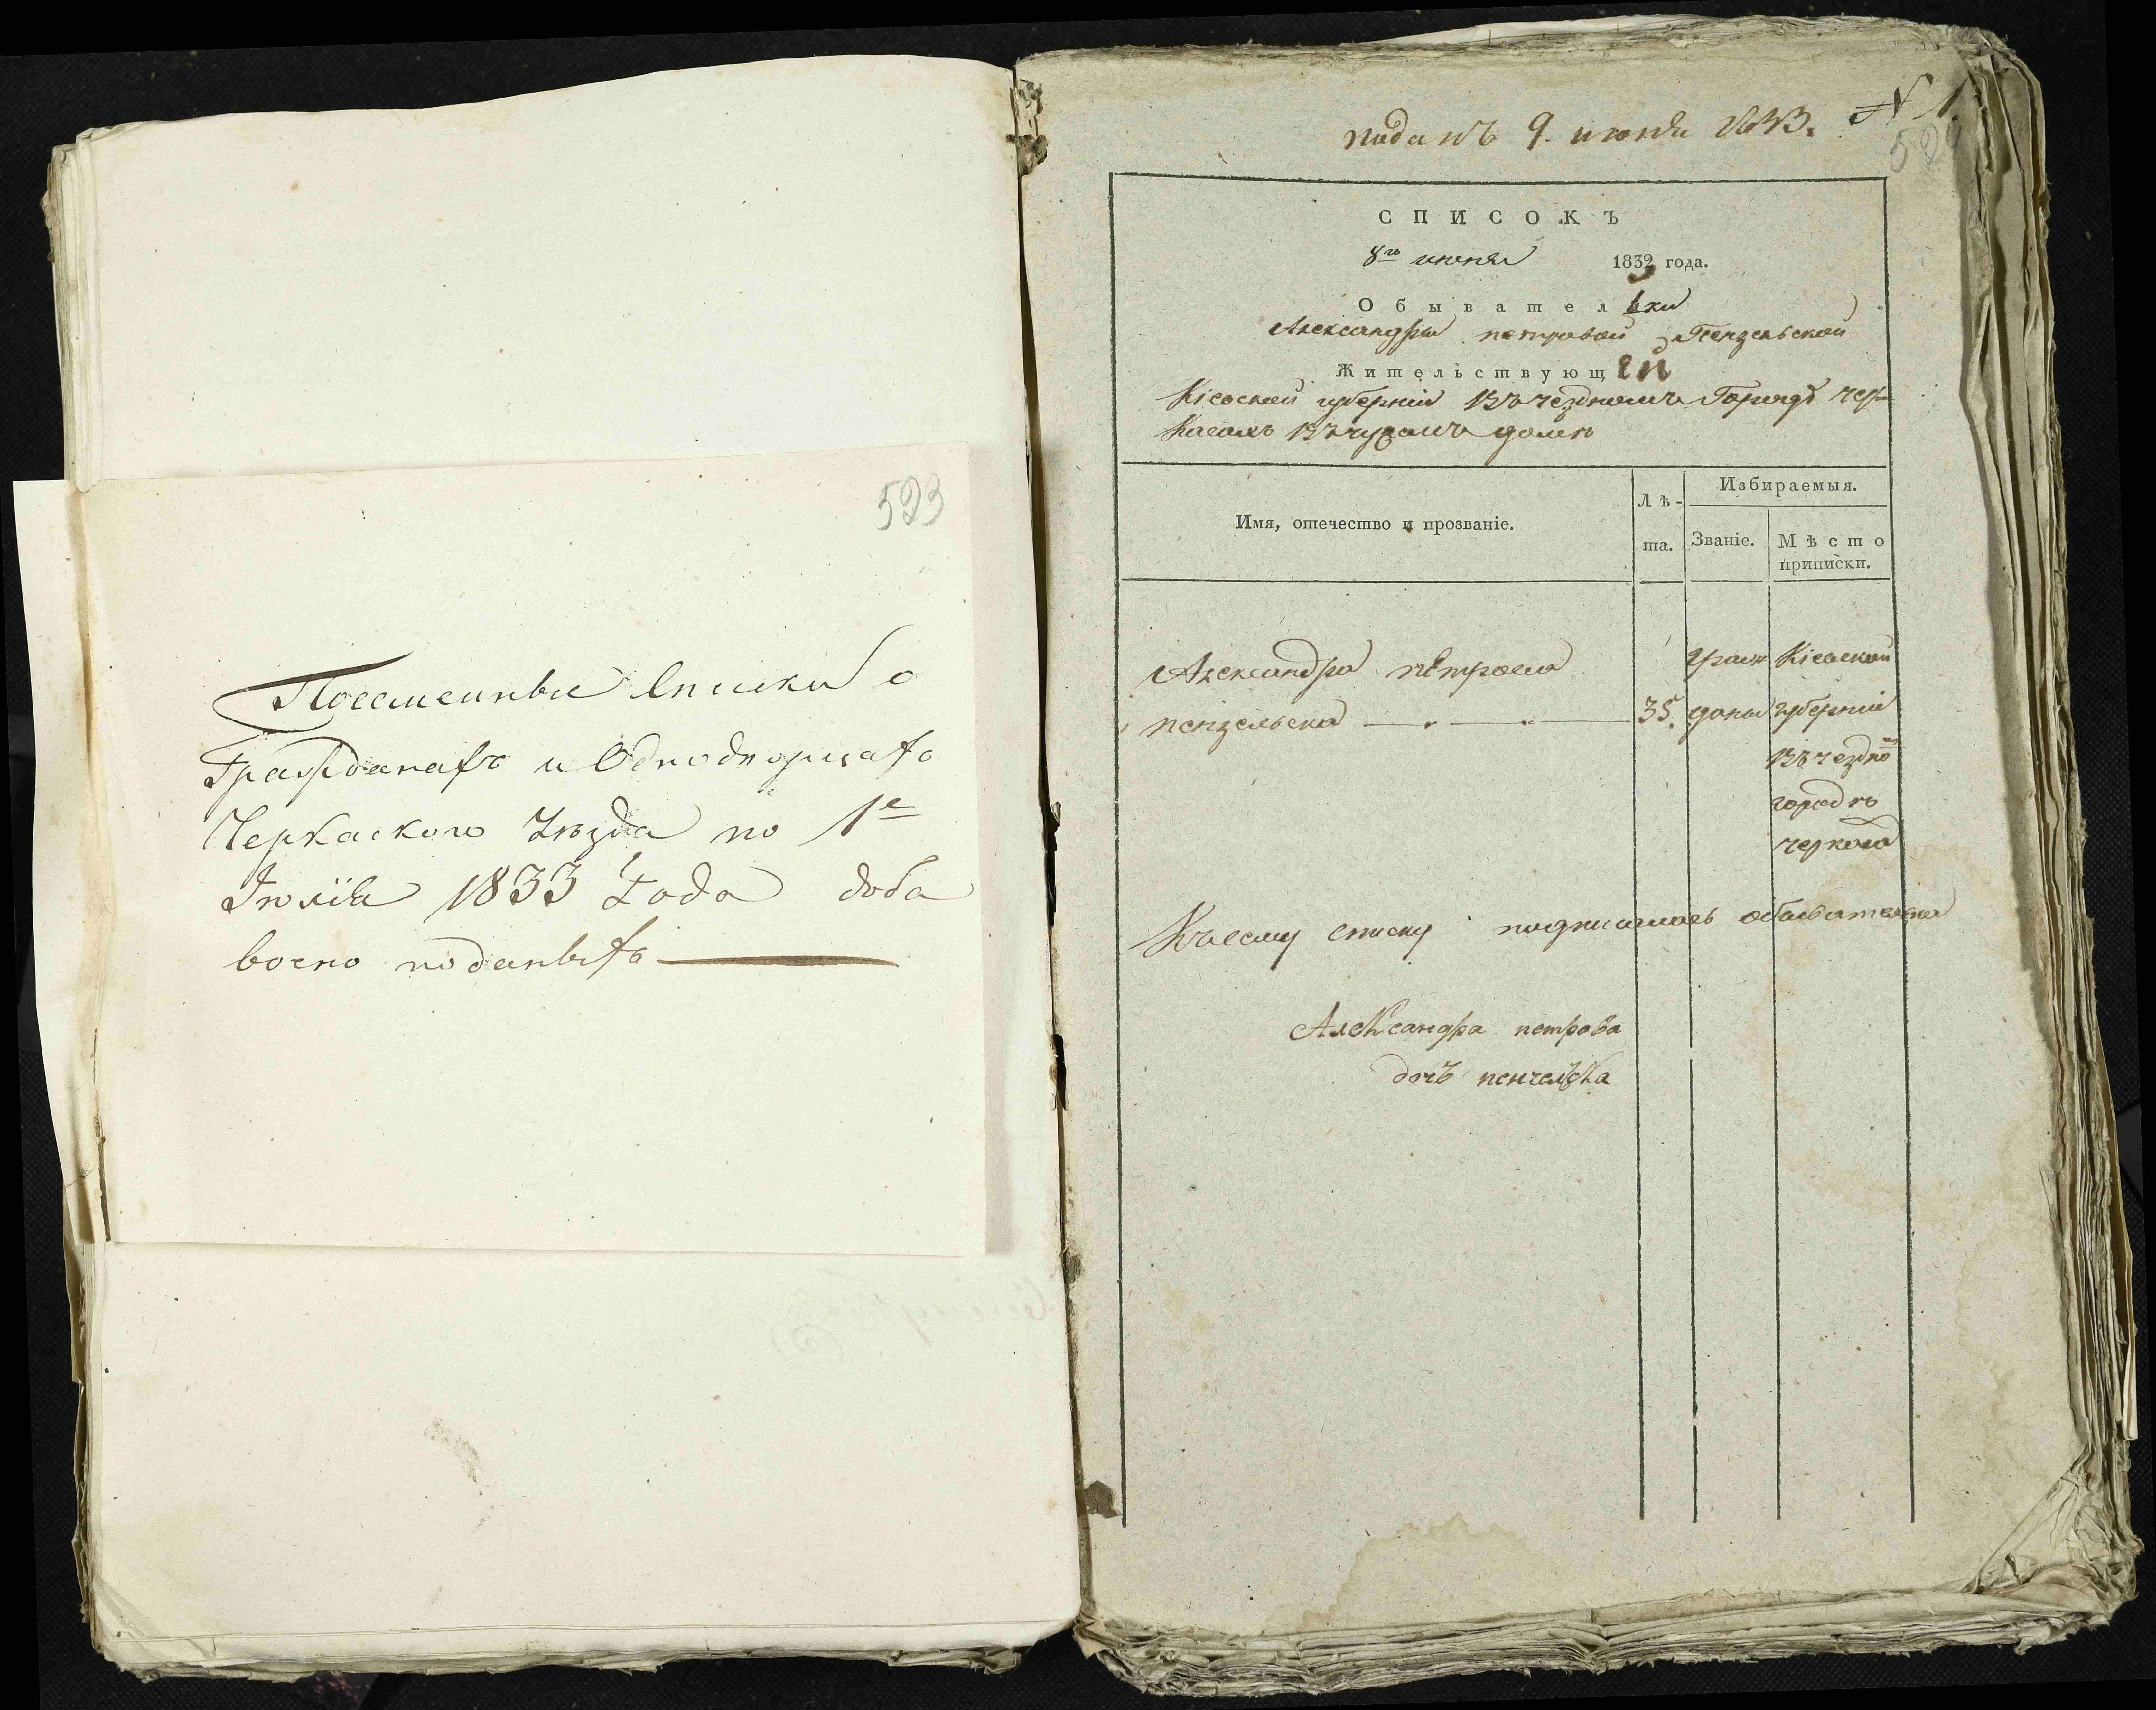 523
Посеменные Списки о
Гражданахъ и Однодворцахъ
Черкаского Уѣзда по 1е
Іюліа 1833 Года доба
вочно поданыхъ
поданъ 9. июня 1833. N 1.
СПИСОКЪ
8го июня 1833 года.
Обывательки
Александры петровой Пензельской
Жительствующей
Кіевской губерніи въ уездномъ Городѣ чер-
касахъ въ чужомъ доме
Имя, отечество и прозваніе.
Лѣ-
та.
Избираемыя.
Званіе.
Мѣсто
приписки.
Александра петрова граж Кіевской
пензельска 35. данка губерніи
въ уездно
городѣ
черкаса
Къ сему списку подписалась обывателька
Александра петрова
дочъ пенчелѣска